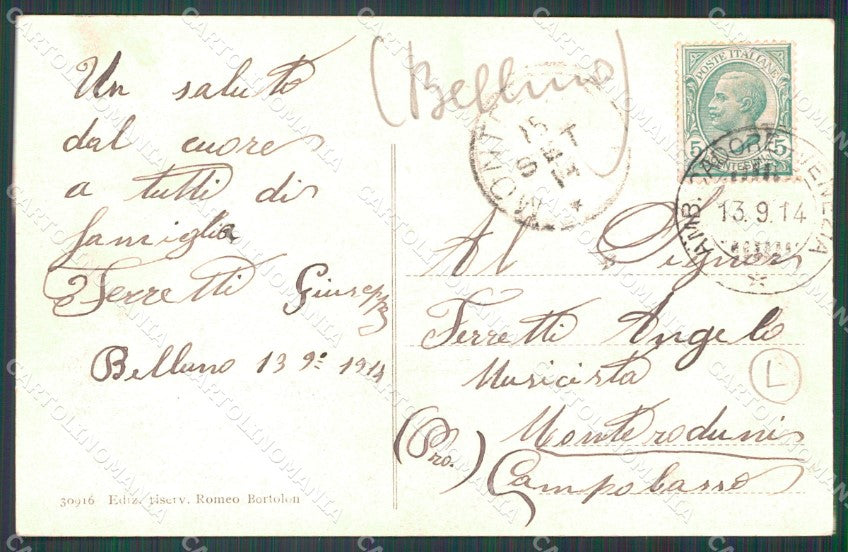 Un saluto
dal cuore
a tutti di
famiglia
Ferretti Giuseppe
Belluno 13 9: 1914
30916 Ediz. riserv. Romeo Bortolon
(Belluno)
15
SET
14
POSTE ITALIANE
5 5
AMB. CADORE VENEZIA
13.9.14
Al Signor
Ferretti Angelo
Musicista
L
Monteroduni
(Pro.) Campobasso
CARTOLINOMANIA